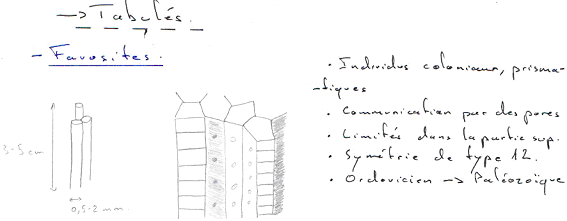 → Tabulés.
- Favosites.
· Individus coloniaux, prisma-
-tiques
· Communication par des pores
· Limités dans la partie sup.
· Symétrie de type 12.
· Ordovicien → Paléozoïque
3-5 cm
0,5-2 mm.